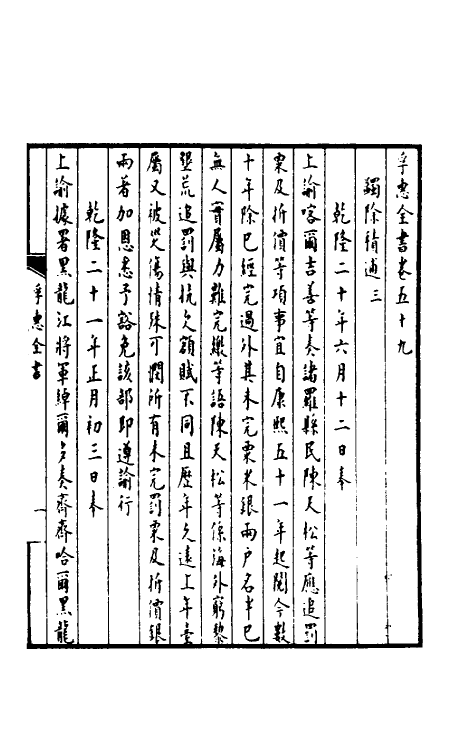 孚惠全書卷五十九
蠲除積逋三
乾隆二十年六月十二日奉
上諭喀爾吉善等奏諸羅縣民陳天松等應追罰
粟及折價等項事宜自康熙五十一年起閱今數
十年除已經完過外其未完粟米銀兩戶名半已
無人實屬力難完繳等語陳天松等係海外窮黎
墾荒追罰與抗欠額賦不同且歷年久遠上年臺
屬又被災傷情殊可憫所有未完罰粟及折價銀
兩著加恩悉予豁免該部即遵諭行
乾隆二十一年正月初三日奉
上諭據署黑龍江將軍綽爾多奏齊齊哈爾黑龍
孚惠全書
一